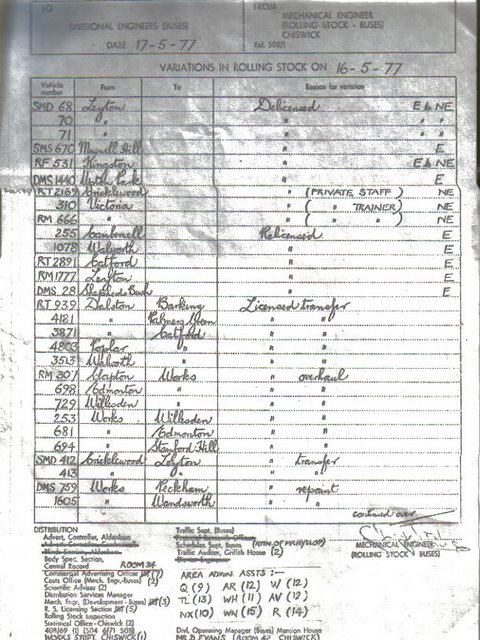 TO
FROM
DIVISIONAL ENGINEERS (BUSES)
MECHANICAL ENGINEER
(ROLLING STOCK - BUSES)
CHISWICK
DATE 17-5-77
Ref. 508/1
VARIATIONS IN ROLLING STOCK ON 16-5-77
Vehicle number From To Reason for variation
SMD 68 Leyton Delicensed E & NE
70 " " " "
71 " " " "
SMS 670 Muswell Hill " E
RF 531 Kingston " E & NE
DMS 1440 North Park " E
RT 2169 Cricklewood " (PRIVATE STAFF) NE
310 Victoria " ( " TRAINER) NE
RM 666 " " ( " " ) NE
255 Camberwell Relicensed E
1078 Walworth " E
RT 2891 Catford " E
RM 1777 Leyton " E
DMS 28 Shepherds Bush " E
RT 939 Dalston Barking Licensed transfer
4181 " Palmers Green " "
3871 " Catford " "
4803 Poplar " " "
3513 Walworth " " "
RM 307 Clapton Works " overhaul
698 Edmonton " " "
729 Willesden " " "
253 Works Willesden " "
681 " Edmonton " "
694 " Stamford Hill " "
SMD 412 Cricklewood Leyton " transfer
413 " " " "
DMS 759 Works Peckham " repaint
1605 " Wandsworth " "
continued over
MECHANICAL ENGINEER
(ROLLING STOCK - BUSES)
DISTRIBUTION
Advert, Controller, Aldenham
Body Spec, Section,
Central Record ROOM 34
Commercial Advertising Officer
Costs Office (Mech, Engr, Buses)
Scientific Advisor (2)
Distribution Services Manager
Mech, Engr, (Development - Buses) (3)
R. S. Licensing Section (5)
Rolling Stock Inspection
Statistical Office - Chiswick (2)
WORKS STUDY, CHISWICK (1)
Traffic Supt, (Buses)
Schedules Supt, (Buses)
Traffic Auditor, Griffith House (2)
AREA ADMIN. ASSTS :-
Q (9) AR (12) W (12)
TL (13) WH (11) AV (12)
NX (10) WN (15) R (14)
Divl, Operating Manager (Buses) Mansion House
MR. D. EVANS (ROOM 42, CHISWICK)